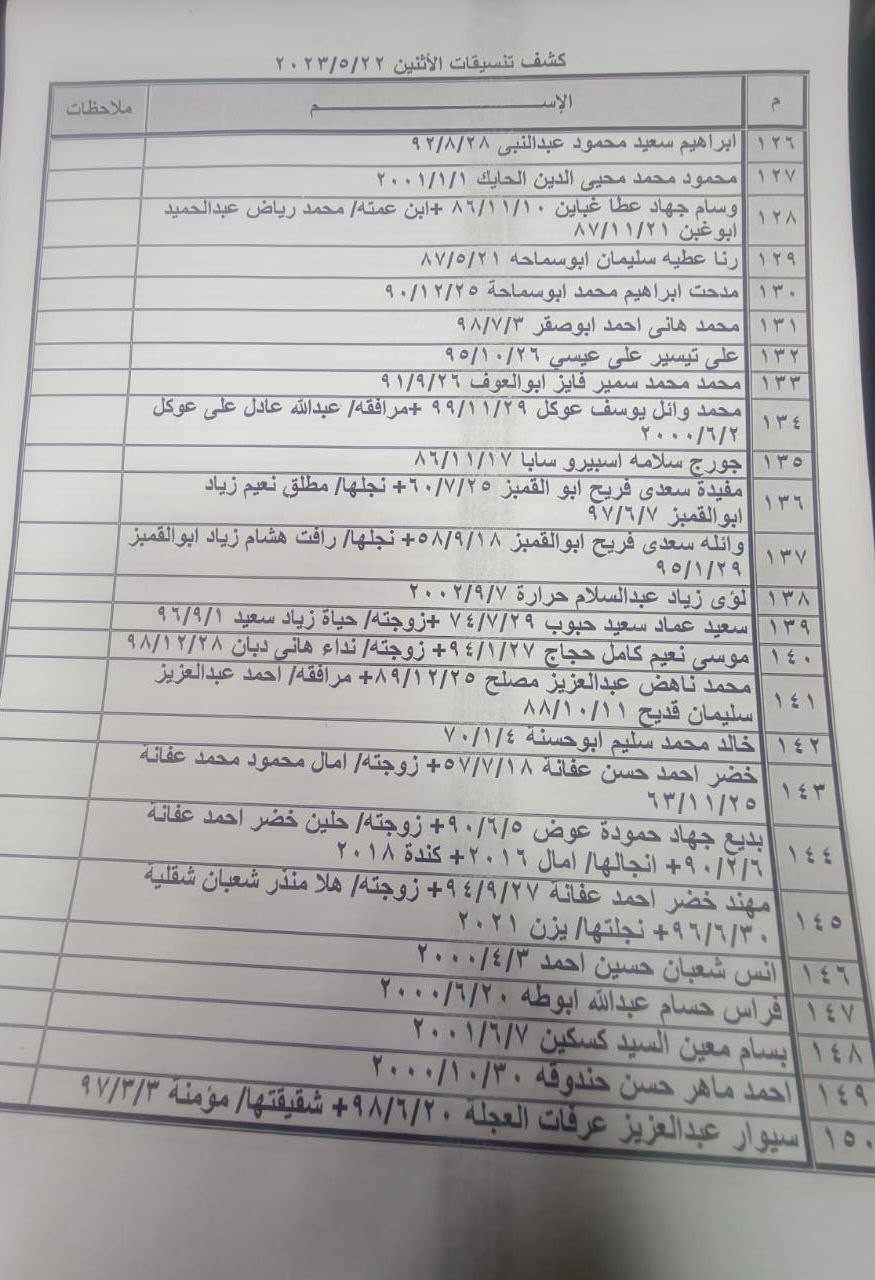 كشف تنسيقات الأثنين ٢٠٢٣/٥/٢٢
م الإســـــــم ملاحظات
١٢٦ ابراهيم سعيد محمود عبدالنبى ٩٢/٨/٢٨
١٢٧ محمود محمد محيى الدين الحايك ٢٠٠١/١/١
١٢٨ وسام جهاد عطا غباين ٨٦/١١/١٠ +ابن عمته/ محمد رياض عبدالحميد
ابوغبن ٨٧/١١/٢١
١٢٩ رنا عطيه سليمان ابوسماحه ٨٧/٥/٢١
١٣٠ مدحت ابراهيم محمد ابوسماحة ٩٠/١٢/٢٥
١٣١ محمد هانى احمد ابوصقر ٩٨/٧/٣
١٣٢ على تيسير على عيسي ٩٥/١٠/٢٦
١٣٣ محمد محمد سمير فايز ابوالعوف ٩١/٩/٢٦
١٣٤ محمد وائل يوسف عوكل ٩٩/١١/٢٩ +مرافقه/ عبدالله عادل على عوكل
٢٠٠٠/٦/٢
١٣٥ جورج سلامه اسبيرو سابا ٨٦/١١/١٧
١٣٦ مفيدة سعدى فريح ابو القمبز ٦٠/٧/٢٥+ نجلها/ مطلق نعيم زياد
ابوالقمبز ٩٧/٦/٧
١٣٧ وائله سعدى فريح ابوالقمبز ٥٨/٩/١٨+ نجلها/ رافت هشام زياد ابوالقمبز
٩٥/١/٢٩
١٣٨ لؤى زياد عبدالسلام حرارة ٢٠٠٢/٩/٧
١٣٩ سعيد عماد سعيد حبوب ٧٤/٧/٢٩ +زوجته/ حياة زياد سعيد ٩٦/٩/١
١٤٠ موسى نعيم كامل حجاج ٩٤/١/٢٧+ زوجته/ نداء هانى دبان ٩٨/١٢/٢٨
١٤١ محمد ناهض عبدالعزيز مصلح ٨٩/١٢/٢٥+ مرافقه/ احمد عبدالعزيز
سليمان قديح ٨٨/١٠/١١
١٤٢ خالد محمد سليم ابوحسنة ٧٠/١/٤
١٤٣ خضر احمد حسن عفانة ٥٧/٧/١٨+ زوجته/ امال محمود محمد عفانة
٦٣/١١/٢٥
١٤٤ بديع جهاد حمودة عوض ٩٠/٦/٥+ زوجته/ حلين خضر احمد عفانة
٩٠/٢/٦+ انجالها/ امال ٢٠١٦+ كندة ٢٠١٨
١٤٥ مهند خضر احمد عفانة ٩٤/٩/٢٧+ زوجته/ هلا منذر شعبان شقلية
٩٦/٦/٣٠+ نجلتها/ يزن ٢٠٢١
١٤٦ انس شعبان حسين احمد ٢٠٠٠/٤/٣
١٤٧ فراس حسام عبدالله ابوطه ٢٠٠٠/٦/٢٠
١٤٨ بسام معين السيد كسكين ٢٠٠١/٦/٧
١٤٩ احمد ماهر حسن حندوقه ٢٠٠٠/١٠/٣٠
١٥٠ سيوار عبدالعزيز عرفات العجلة ٩٨/٦/٢٠+ شقيقتها/ مؤمنة ٩٧/٣/٣